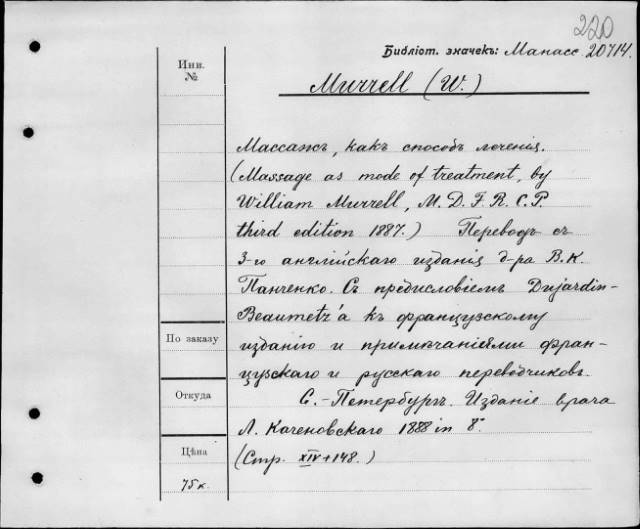 220
Библіот. значекъ: Манасс. 20714.
Инв.
№
Murrell (W.)
Массажъ, какъ способъ леченія.
(Massage as mode of treatment, by
William Murrell, M. D. F. R. C. P.
third edition 1887.) Переводъ съ
3-го англійскаго изданія д-ра В. К.
Панченко. Съ предисловіемъ Dujardin-
Beaumetz'a къ французскому
изданію и примѣчаніями фран-
цузскаго и русскаго переводчиковъ.
С.-Петербургъ. Изданіе врача
Л. Каченовскаго 1888 in 8°.
(Стр. XIV+148.)
По заказу
Откуда
Цѣна
75 к.